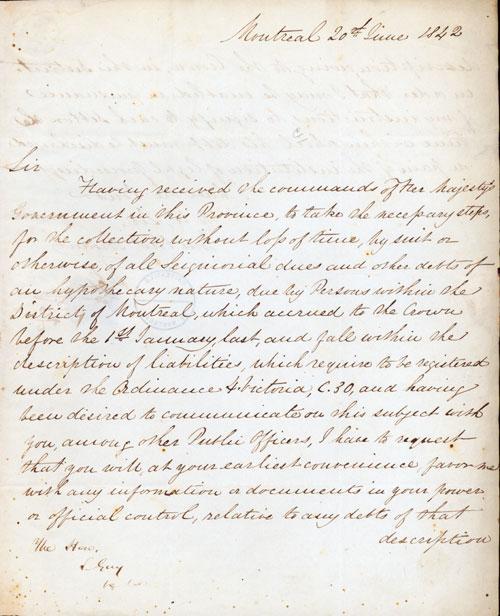 Montreal 20th June 1842
Sir
Having received the commands of Her Majesty's
Government in this Province, to take the necessary steps,
for the collection, without loss of time, by suit or
otherwise, of all Seigniorial dues and other debts of
an hypothecary nature, due by Persons within the
District of Montreal, which accrued to the Crown
before the 1st January last, and fall within the
description of liabilities, which require to be registered
under the Ordinance 4 Victoria, C. 30, and having
been desired to communicate on this subject with
you, among other Public Officers, I have to request
that you will, at your earliest convenience, favor me
with any information or documents in your power
or official control, relative to any debts of that
description
The Hon.
L Guy